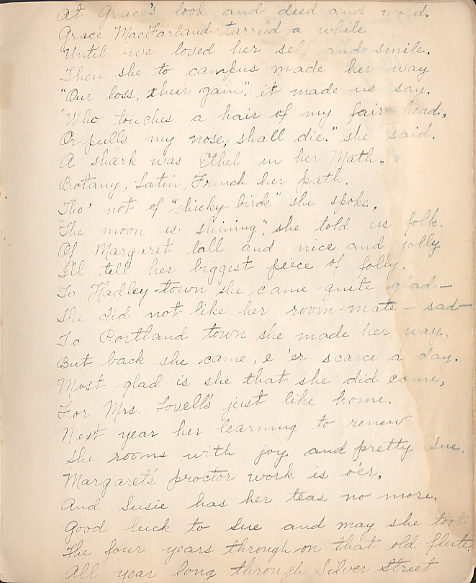 At Grace's look and deed and word.
Grace MacFarland tarried a while
Until we loved her sel and smile.
Then she to campus made her way
"Our loss, their gain", it made us say.
"Who touches a hair of my fair head,
Or pulls my nose, shall die." she said.
A shark was Ethel in her Math.
Botany, Latin, French her path.
Tho' not of "chicky birds" she spoke,
"The moon is shining", she told us folk.
Of Margaret tall and nice and jolly
I'll tell her biggest piece of folly.
To Hadley-town she came quite glad—
She did not like her room-mate—sad—
To Portland town she made her way.
But back she came, e'er scarce a day.
Most glad is she that she did come,
For Mrs. Lovell's just like home.
Next year her learning to renew
She rooms with joy and pretty Sue.
Margaret's proctor work is o'er,
And Susie has her teas no more.
Good luck to Sue and may she toot
The four years through on that old flute.
All year long through Silver Street